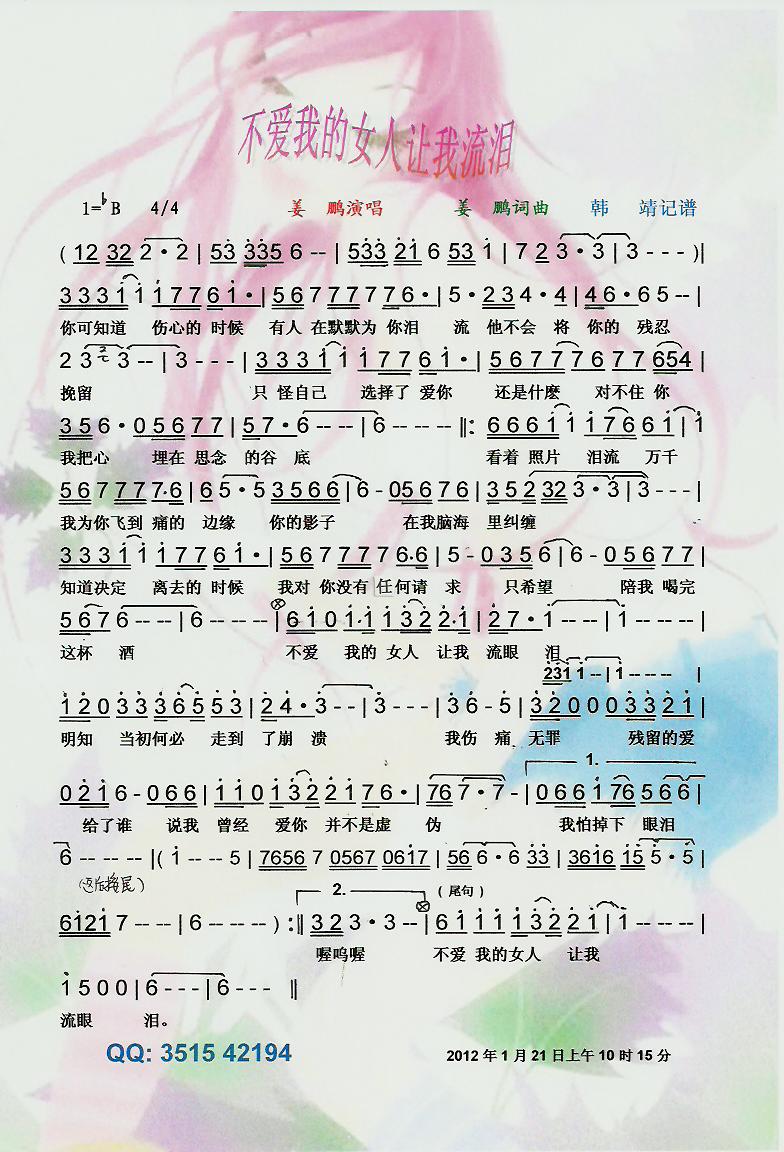 不爱我的女人让我流泪
1=♭B 4/4 姜 鹏演唱 姜 鹏词曲 韩 靖记谱
( 12 32 2·2 | 53 335 6 -- | 533 21 6 53 1 | 7 2 3·3 | 3 - - - )|
3 3 3 1 1 1 7 7 6 1· | 5 6 7 7 7 7 7 7 6· | 5·2 3 4·4 | 4 6·6 5 -- |
你可知道 伤心的 时候 有人 在默默为 你泪 流 他不会 将 你的 残忍
2 3 3 -- | 3 - - - | 3 3 3 1 1 1 7 7 6 1· | 5 6 7 7 7 6 7 7 654 |
挽留 只 怪自己 选择了 爱你 还是什麽 对不住 你
3 5 6·0 5 6 7 7 | 5 7·6 -- | 6 -- -- -- ‖: 6 6 6 1 1 1 76 6 1 | 1
我把心 埋在 思念 的谷 底 看着 照片 泪流 万千
5 6 7 7 7 7·6 | 6 5·5 3 5 6 6 | 6 - 05 6 7 6 | 3 5 2 32 3·3 | 3 -- -- |
我为你飞到 痛的 边缘 你的影子 在我脑海 里纠缠
3 3 3 1 1 1 7 7 6 1· | 5 6 7 7 7 7 6·6 | 5 - 0 3 5 6 | 6 - 0 5 6 7 7 |
知道决定 离去的 时候 我对 你没有 任何请 求 只希望 陪我 喝完
5 6 7 6 -- -- | 6 -- -- -- | 6 1 0 1·1 1 3 2 2·1 | 2 7·1 -- | 1 -- -- -- |
这杯 酒 不爱 我的 女人 让我 流眼 泪
231 1 -- | 1 -- -- -- |
1 2 0 3 3 3 6 5 5 3 | 2 4·3 -- | 3 -- -- | 3 6 - 5 | 3 2 0 0 0 3 3 2 1 |
明知 当初何必 走到 了崩 溃 我伤 痛 无罪 残留的爱
1.
0 2 1 6 - 0 6 6 | 1 1 0 1 3 2 2 1 7 6· | 76 7·7 - | 0 6 6 1 76 5 6 6 |
给了谁 说我 曾经 爱你 并不是虚 伪 我怕掉下 眼泪
6 -- -- -- |( 1 -- -- 5 | 7656 7 0567 0617 | 56 6·6 33 | 3616 15 5·5 |
2. (尾句)
6121 7 -- -- | 6 -- -- -- ) :‖ 3 2 3·3 -- | 6 1 1 1 1 3 2 2 1 | 1 -- -- -- |
喔呜喔 不爱 我的女人 让我
1 5 0 0 | 6 - - - | 6 - - - ‖
流眼 泪。
QQ: 3515 42194 2012 年 1 月 21 日上午 10 时 15 分